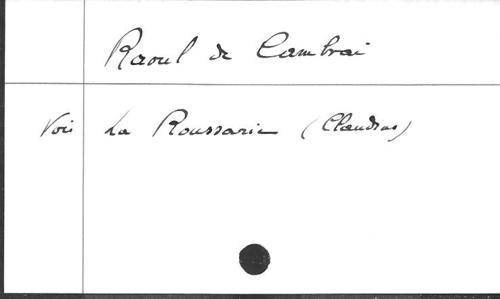 Raoul de Cambrai
Voir La Roussarie (Claudius)